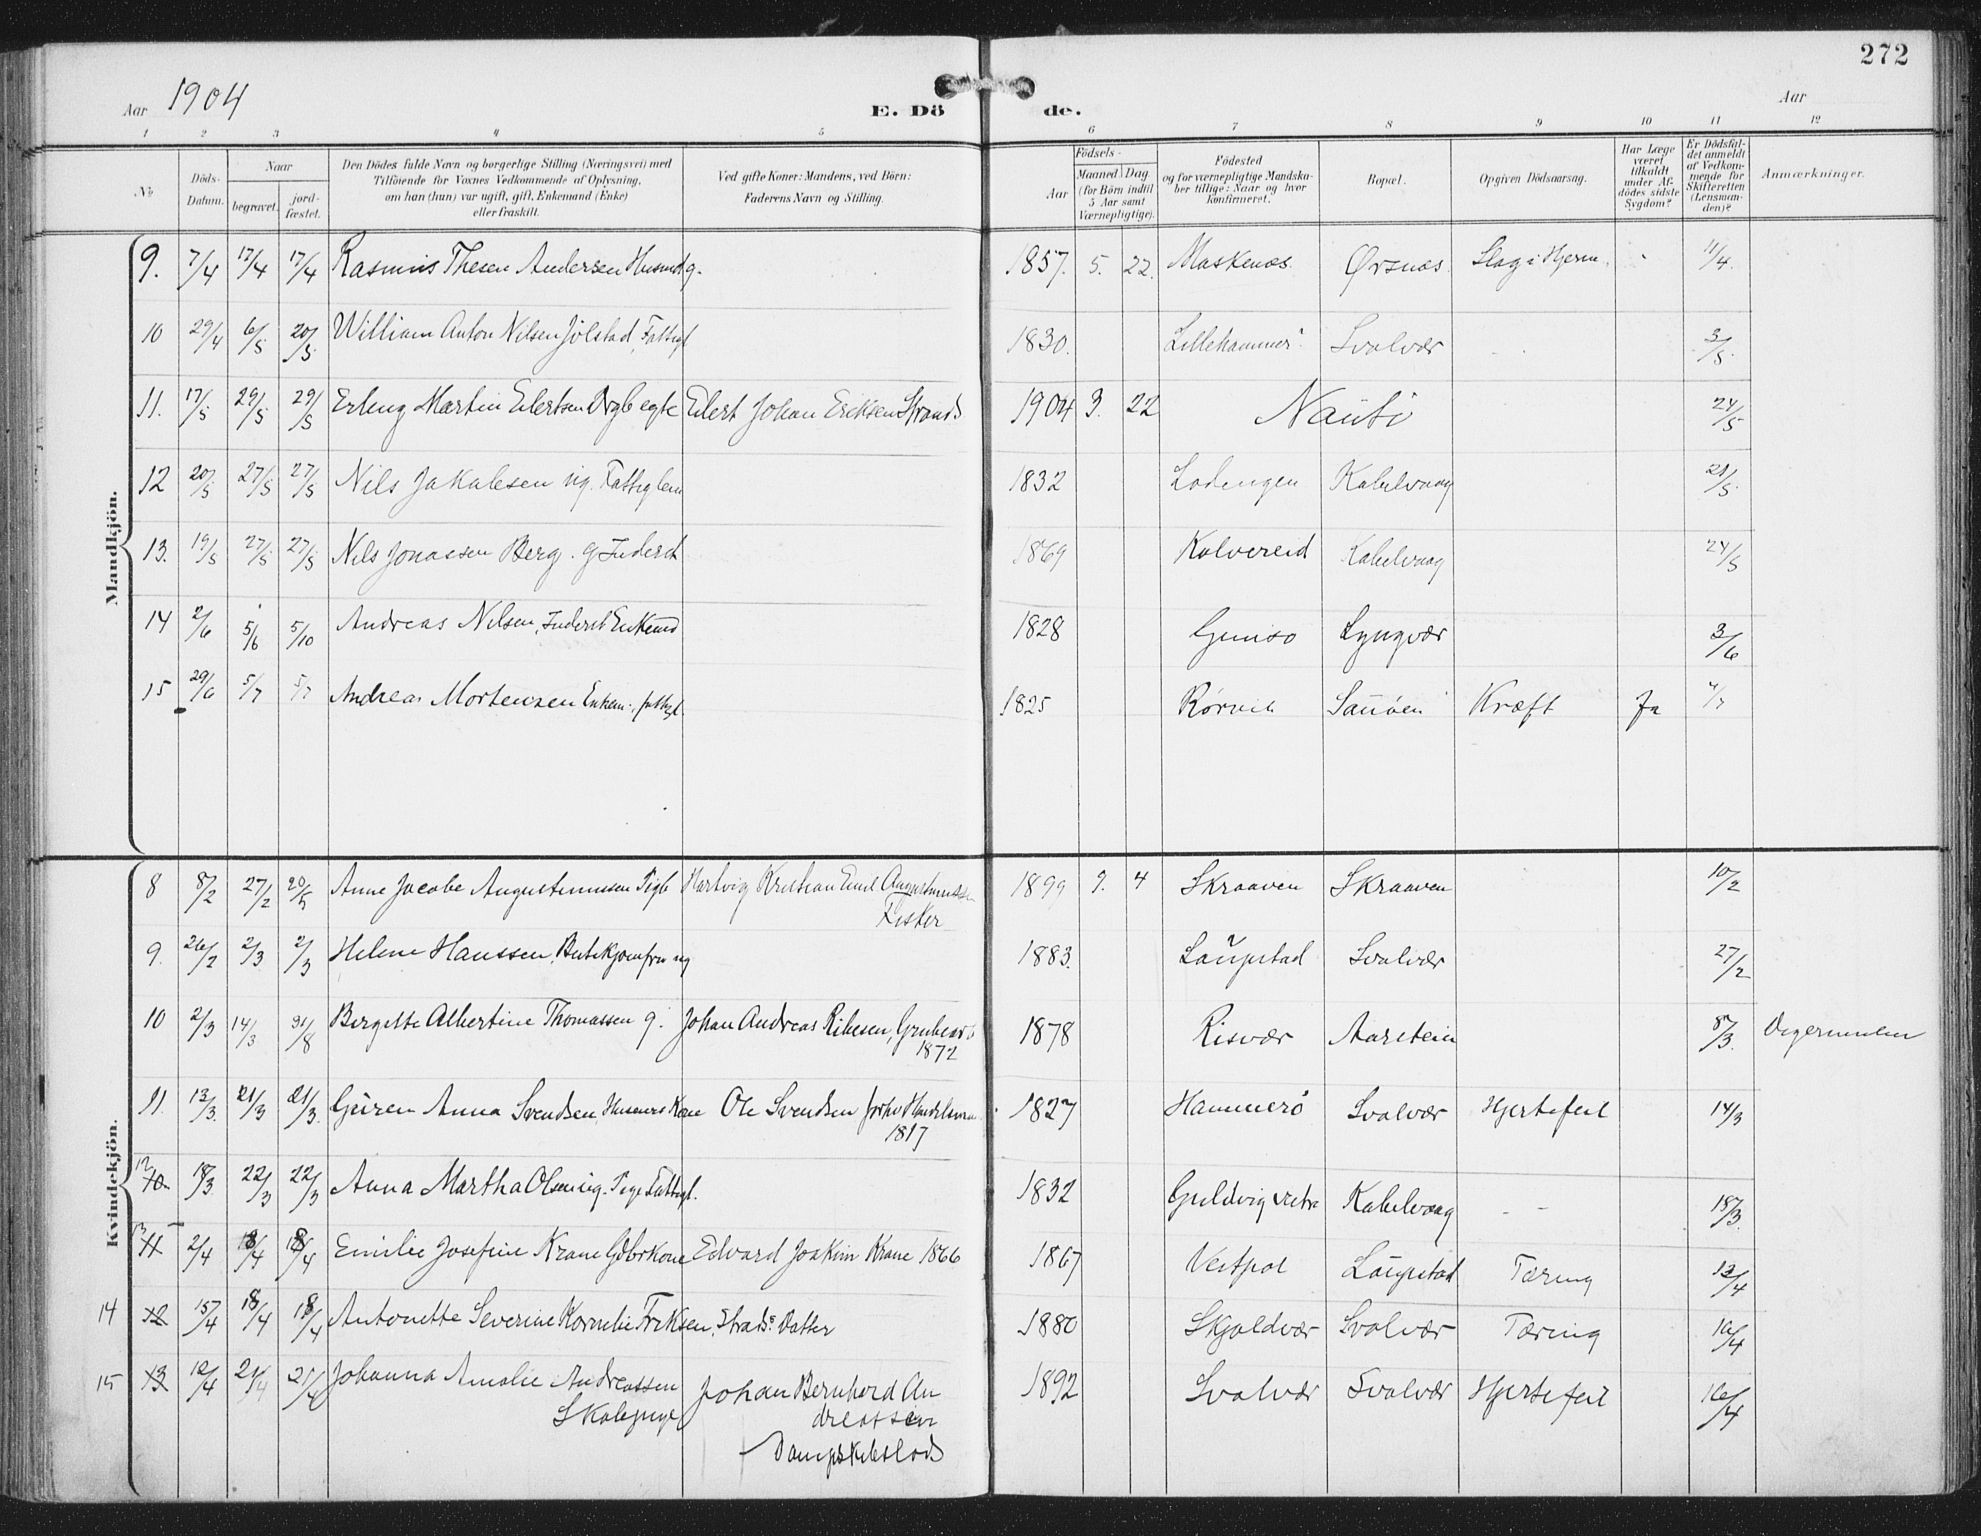 272
Aar 1904
E. Dö de.
Aar
1 2 3 4 5 6 7 8 9 10 11 12
No
Döds-Datum.
Naar
begravet.
jord-fæstet.
Den Dödes fulde Navn og borgerlige Stilling (Næringsvei) med
Tilföiende for Voxnes Vedkommende af Oplysning,
om han (hun) var ugift, gift, Enkemand (Enke)
eller fraskilt.
Ved gifte Koner: Mandens, ved Börn:
Faderens Navn og Stilling.
Födsels-
Aar
Maaned Dag
(for Börn indtil
5 Aar samt
Værnepligtige).
Födested
og for værnepligtige Mandska-
ber tillige: Naar og hvor
konfirmeret.
Bopæl.
Opgiven Dödsaarsag.
Har Læge
været
tilkaldt
under Af-
dödes sidste
Sygdom?
Er Dödsfal-
det anmeldt
af Vedkom-
mende for
Skifteretten
(Lensman-
den)?
Anmærkninger.
Mandkjön.
9. 7/4 17/4 17/4 Rasmus Thesen Andersen Husmd g. 1857. 5. 22. Maskenæs. Ørsnæs. Slag i Hjern. 11/4.
10 29/4 6/5 20/5 William Anton Nilsen Jölstad, Fattigl 1830. Lillehammer Svolvær 3/5.
11. 17/5 29/5 29/5 Erling Martin Eilertsen Drgb egte Eilert Johan Eriksen Strands 1904 3. 22 24/5
12 20/5 27/5 27/5 Nils Jakobsen ug. Fattiglem 1832 Lodengen Kabelvaag 21/5.
13. 19/5 27/5 27/5 Nils Jonassen Berg. g Inderst 1869 Kolvereid Kabelvaag 24/5
14 2/6 5/6 5/10 Andreas Nilsen, Inderst Enkemd 1828 Gimsö Lyngvær 3/6
15 29/6 5/7 5/7 Andreas Mortensen Enkem., fattigl. 1825 Rörvik Sauöen Kræft Ja 4/7
Kvindekjön.
8 8/2 27/2 Anne Jacobe Augustinussen Pigb Hartvig Kristian Emil Augustinussen
Fisker 1899 9. 4 Skraaven Skraaven 10/2
9. 26/2 2/3 2/3 Helene Hanssen, Butikjomfru ug 1883. Laupstad Svolvær 27/2
10 2/3 14/3 31/8 Bergitte Albertine Thomassen g. Johan Andreas Ribesen, Grubearb
1872 1878 Risvær Aarstein 8/3. Digermulen
11. 13/3. 21/3 21/3. Guren Anna Svendsen, Husmds Kone Ole Svendsen forhv Handelsman
1817 1827 Hammerö Svolvær Hjertefeil 14/3
12 10 18/3 22/3 22/3 Anna Martha Olsen ug. Pige Fattigl. 1832 Guldvig vstra Kabelvaag 18/3.
13 11 2/4 18/4 18/4 Emilie Josefine Krane Gdbrkone Edvard Joakim Krane 1866 1867 Vestpol Laupstad Tæring 13/4
14 12 15/4 18/4 18/4 Antonette Severine Kornelie Eriksen, Strads. Datter 1880 Skjoldvær Svolvær Tæring 16/4
15 13 12/4 21/4 21/4 Johanna Amalie Andreassen
Skolepige Johan Bernhard An
dreassen
Dampskibslods 1892 Svolvær Svolvær Hjertefeil 16/4